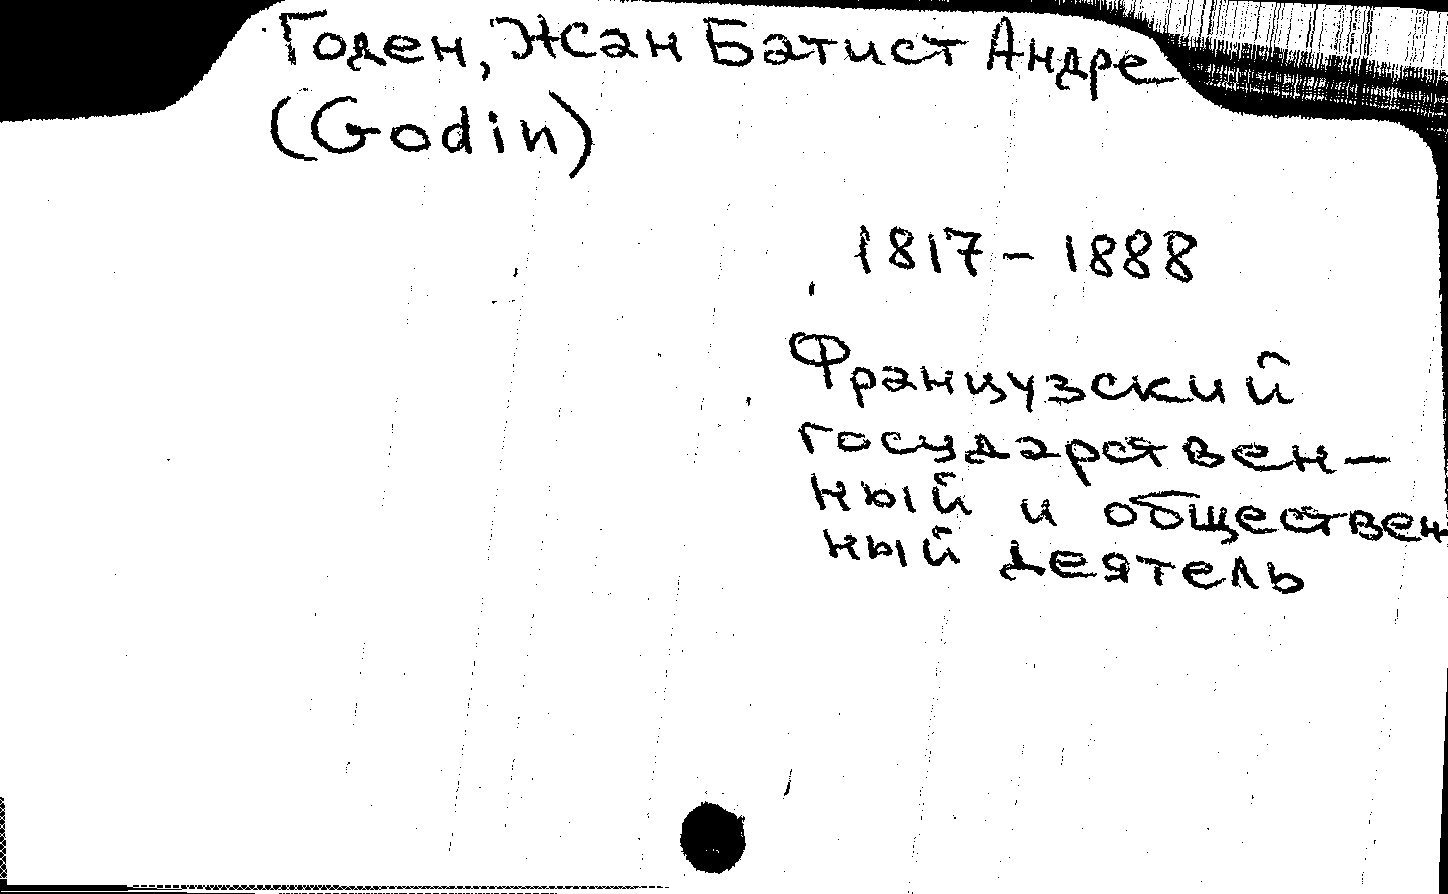 Годен, Жан Батист Андре
(Godin)
1817 - 1888
Французский
государствен-
ный и обществен
ный деятель